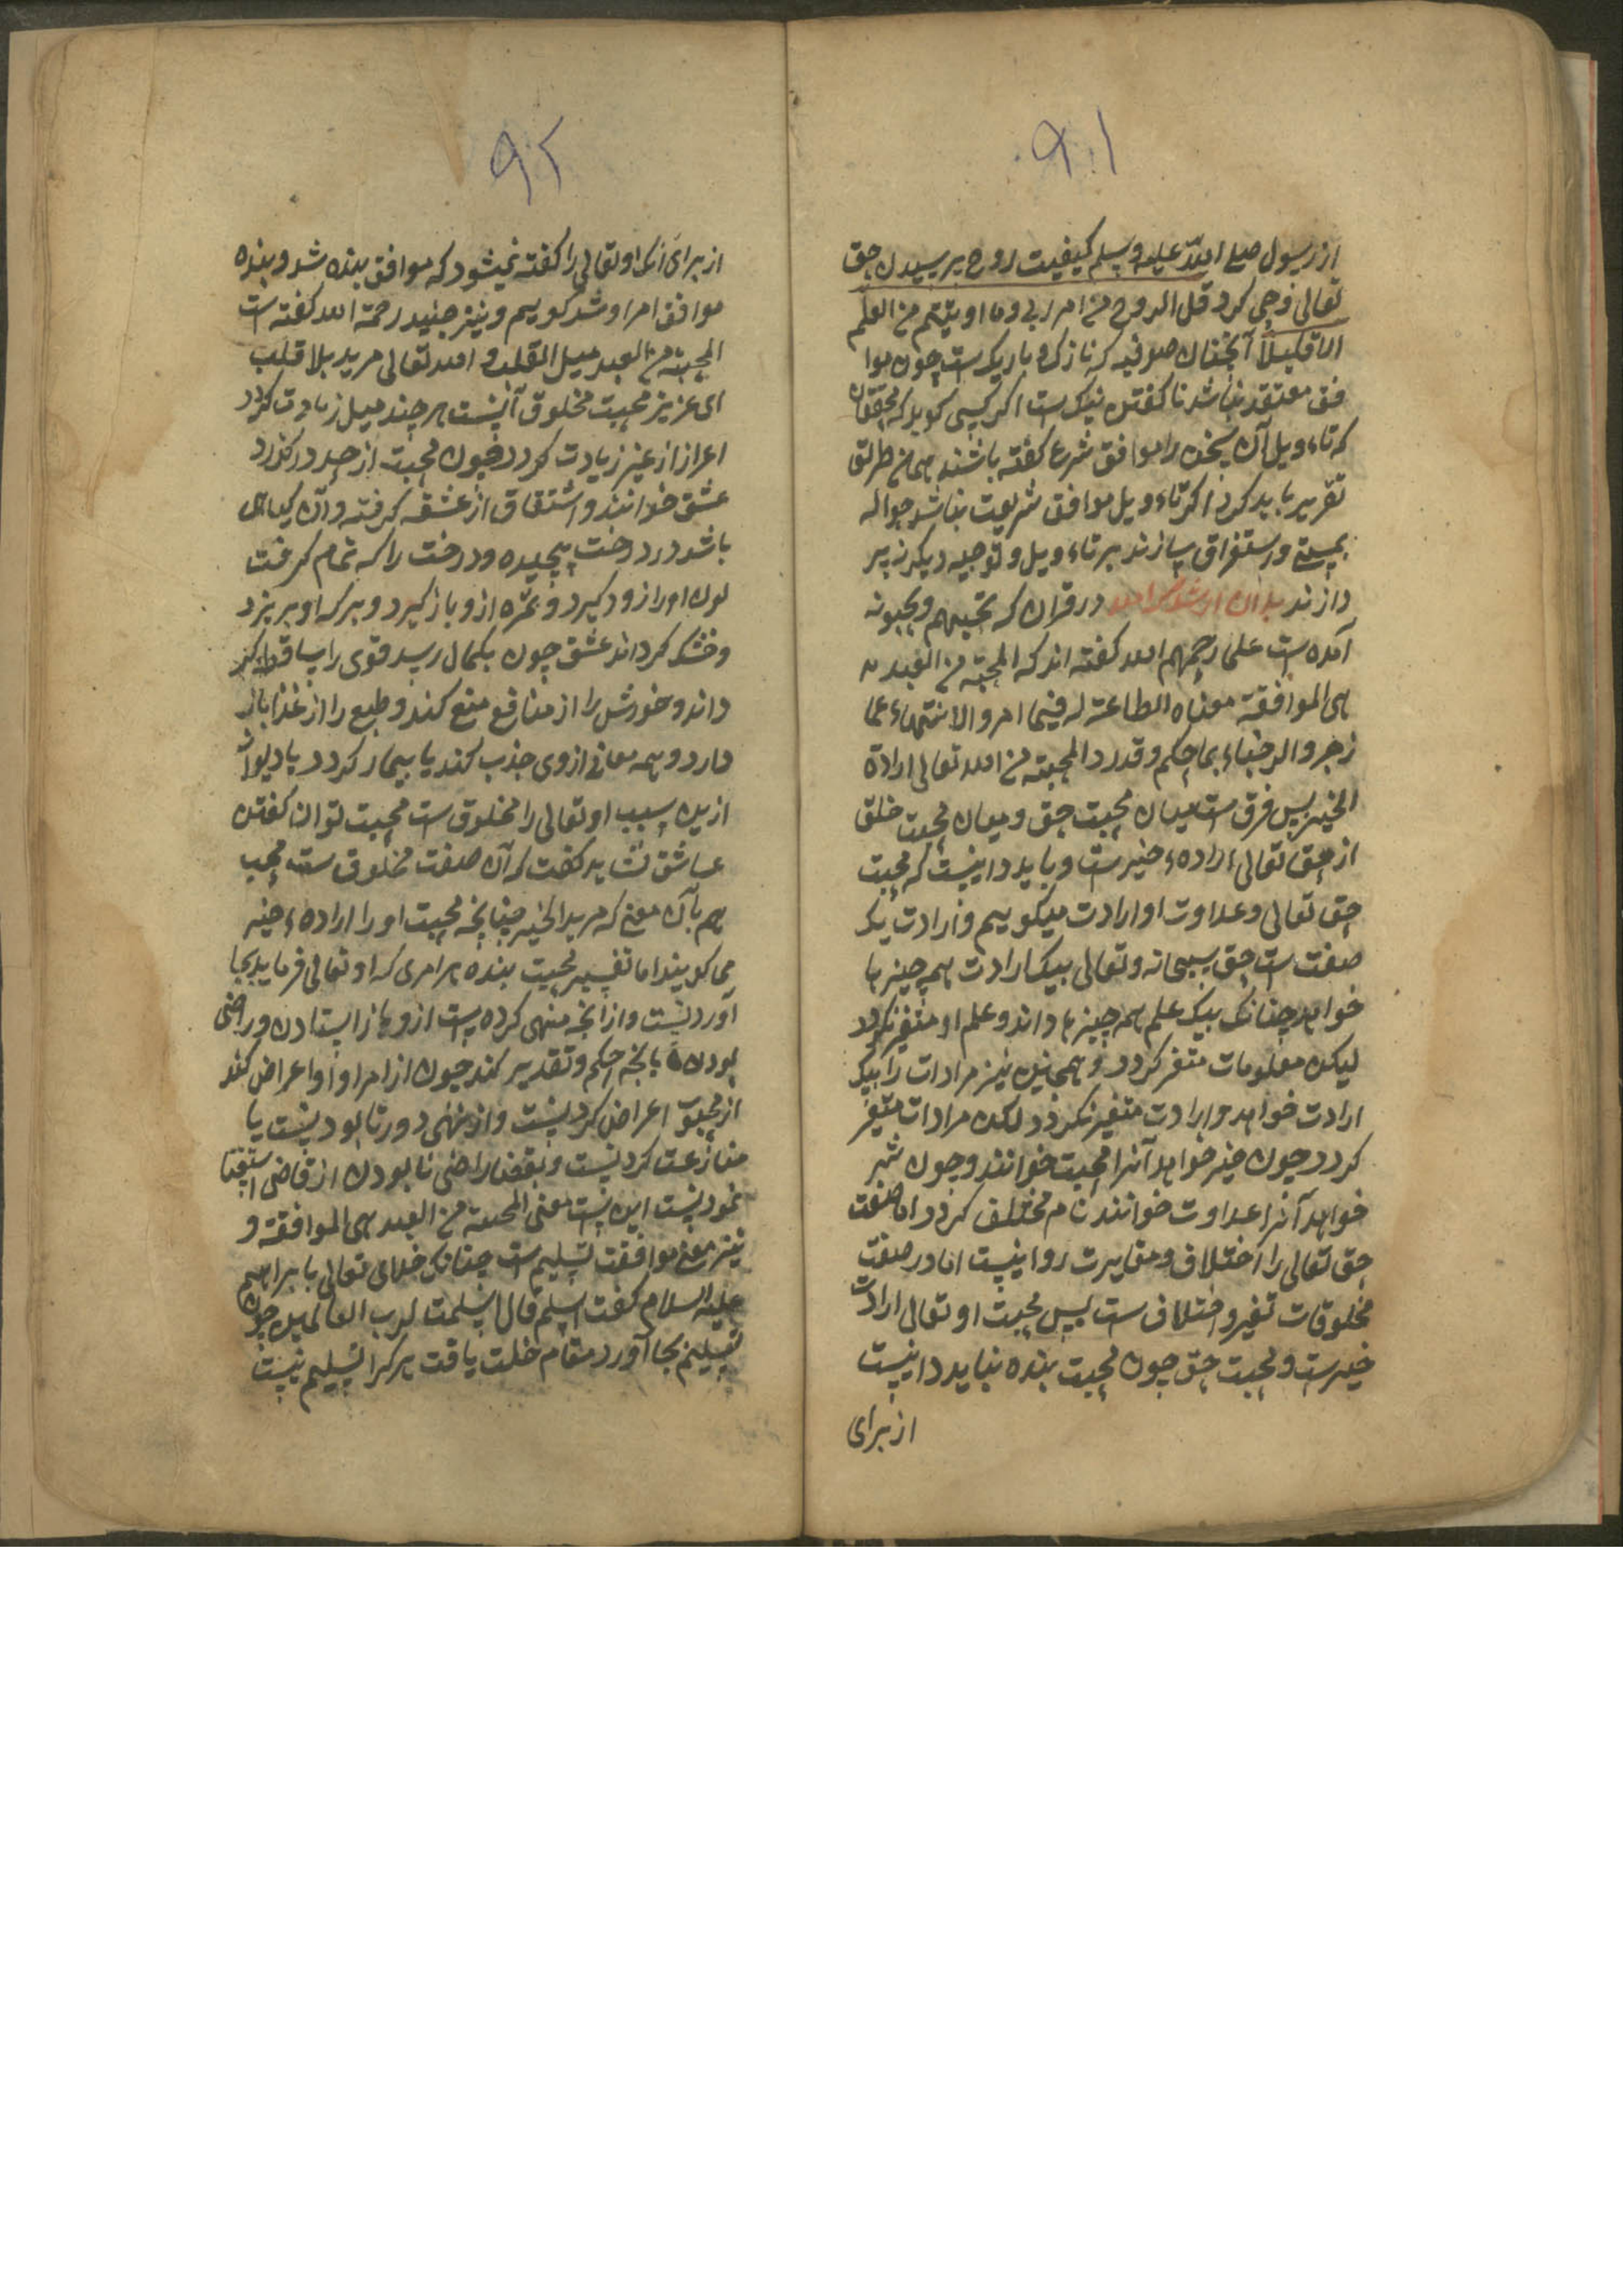 ۹۱
از رسول صلی الله علیه وسلم کیفیت روح پرسیدن حق
تعالی وحی کرد قل الروح من امر ربی وما اوتیتم من العلم
الا قلیلاً آنچنان صوفیه که نازک و باریک است چون موا
فق معتقد نباشد ناگفتن نیک است اگر کسی گوید که محققان
که تاءویل آن سخن را موافق شرع گفته باشند بهمان طریق
تقریر باید کرد اگر تاءویل موافق شریعت نباشد حواله
بمستی و استغراق سازند بر تاءویل و توجیه دیگر نه پر
دازند بدان ارشدک الله در قران که تحبهم ویحبونه
آمده است علما رحمهم الله گفته اند که المحبته من العبد
هی الموافقة معناه الطاعة له فیما امر والانتهاء عما
زجر والرضاء بما حکم وقدر والمحبته من الله تعالی ارادة
الخیر پس فرق است میان محبت حق و میان محبت خلق
از حق تعالی اراده خیر است و باید دانیست که محبت
حق تعالی و عداوت او ارادت میگوییم و ارادت یک
صفت است حق سبحانه وتعالی بیک ارادت همه چیزها
خواهد چنانک بیک علم همه چیزها داند و علم او متغیر نگردد
لیکن معلومات متغیر گردد و همچنین نیز مرادات را بیک
ارادت خواهد و ارادت متغیر نگردد لکن مرادات متغیر
گردد چون خیر خواهد آنرا محبت خوانند و چون شر
خواهد آنرا عداوت خوانند نام مختلف گردد اما صفت
حق تعالی را اختلاف و مغایرت روا نیست اما در صفت
مخلوقات تغیر و اختلاف است پس محبت او تعالی ارادت
خیرست و محبت حق چون محبت بنده نباید دانیست
از برای
۹۲
از برای آنک او تعالی را گفته نمیشود که موافق بنده شد و بنده
موافق امر او شد گوییم و نیز جنید رحمة الله گفته است
المحبته من العبد میل القلب و الله تعالی مرید بلا قلب
ای عزیز محبت مخلوق آنست هر چند میل زیادت گردد
اعراز از غیر زیادت گردد چون محبت از حد در گذرد
عشق خوانند و اشتقاق از عشقه گرفته و آن گیاهی
باشد در درخت پیچیده و درخت را که تمام گرفت
لون او را زود گیرد و ثمره ازو باز گیرد و برگ او بریزد
و خشک گرداند عشق چون بکمال رسد قوی را ساقط گر
داند و خورش را از منافع منع کند و طبع را از غذا باز
دارد و همه معانی ازوی جذب کند یا بیمار گردد یا دیوانه
ازین سبب او تعالی را مخلوق است محبت توان گفتن
عاشق نشاید گفت که آن صفت مخلوق ست محب
هم بآن معنی که مرید الخیر چنانچه محبت او را اراده خیر
می گویند اما تفسیر محبت بنده هر امری که او تعالی فرماید بجا
آوردنیست و از آنچه منهی کرده است ازو باز استادن و راضی
بودن بآنچه حکم و تقدیر کند چون از امر او اعراض کند
از محبوب اعراض کردنیست و از نهی دور نابودنیست یا
منازعت کردنیست و بقضا راضی نابودن از قاضی استیفا
نمودنیست این است معنی المحبة من العبد هی الموافقة و
نیز معنی موافقت تسلیم است چنانک خدای تعالی بابراهیم
علیه السلام گفت اسلم قال اسلمت لرب العالمین چون
تسلیم بجا آورد مقام خلت یافت هر کرا تسلیم نیست